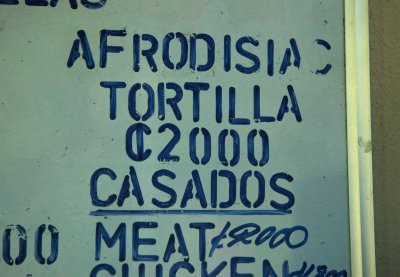 AFRODISIAC
TORTILLA
₡2000
CASADOS
00 MEAT ₡2000
CHICKEN